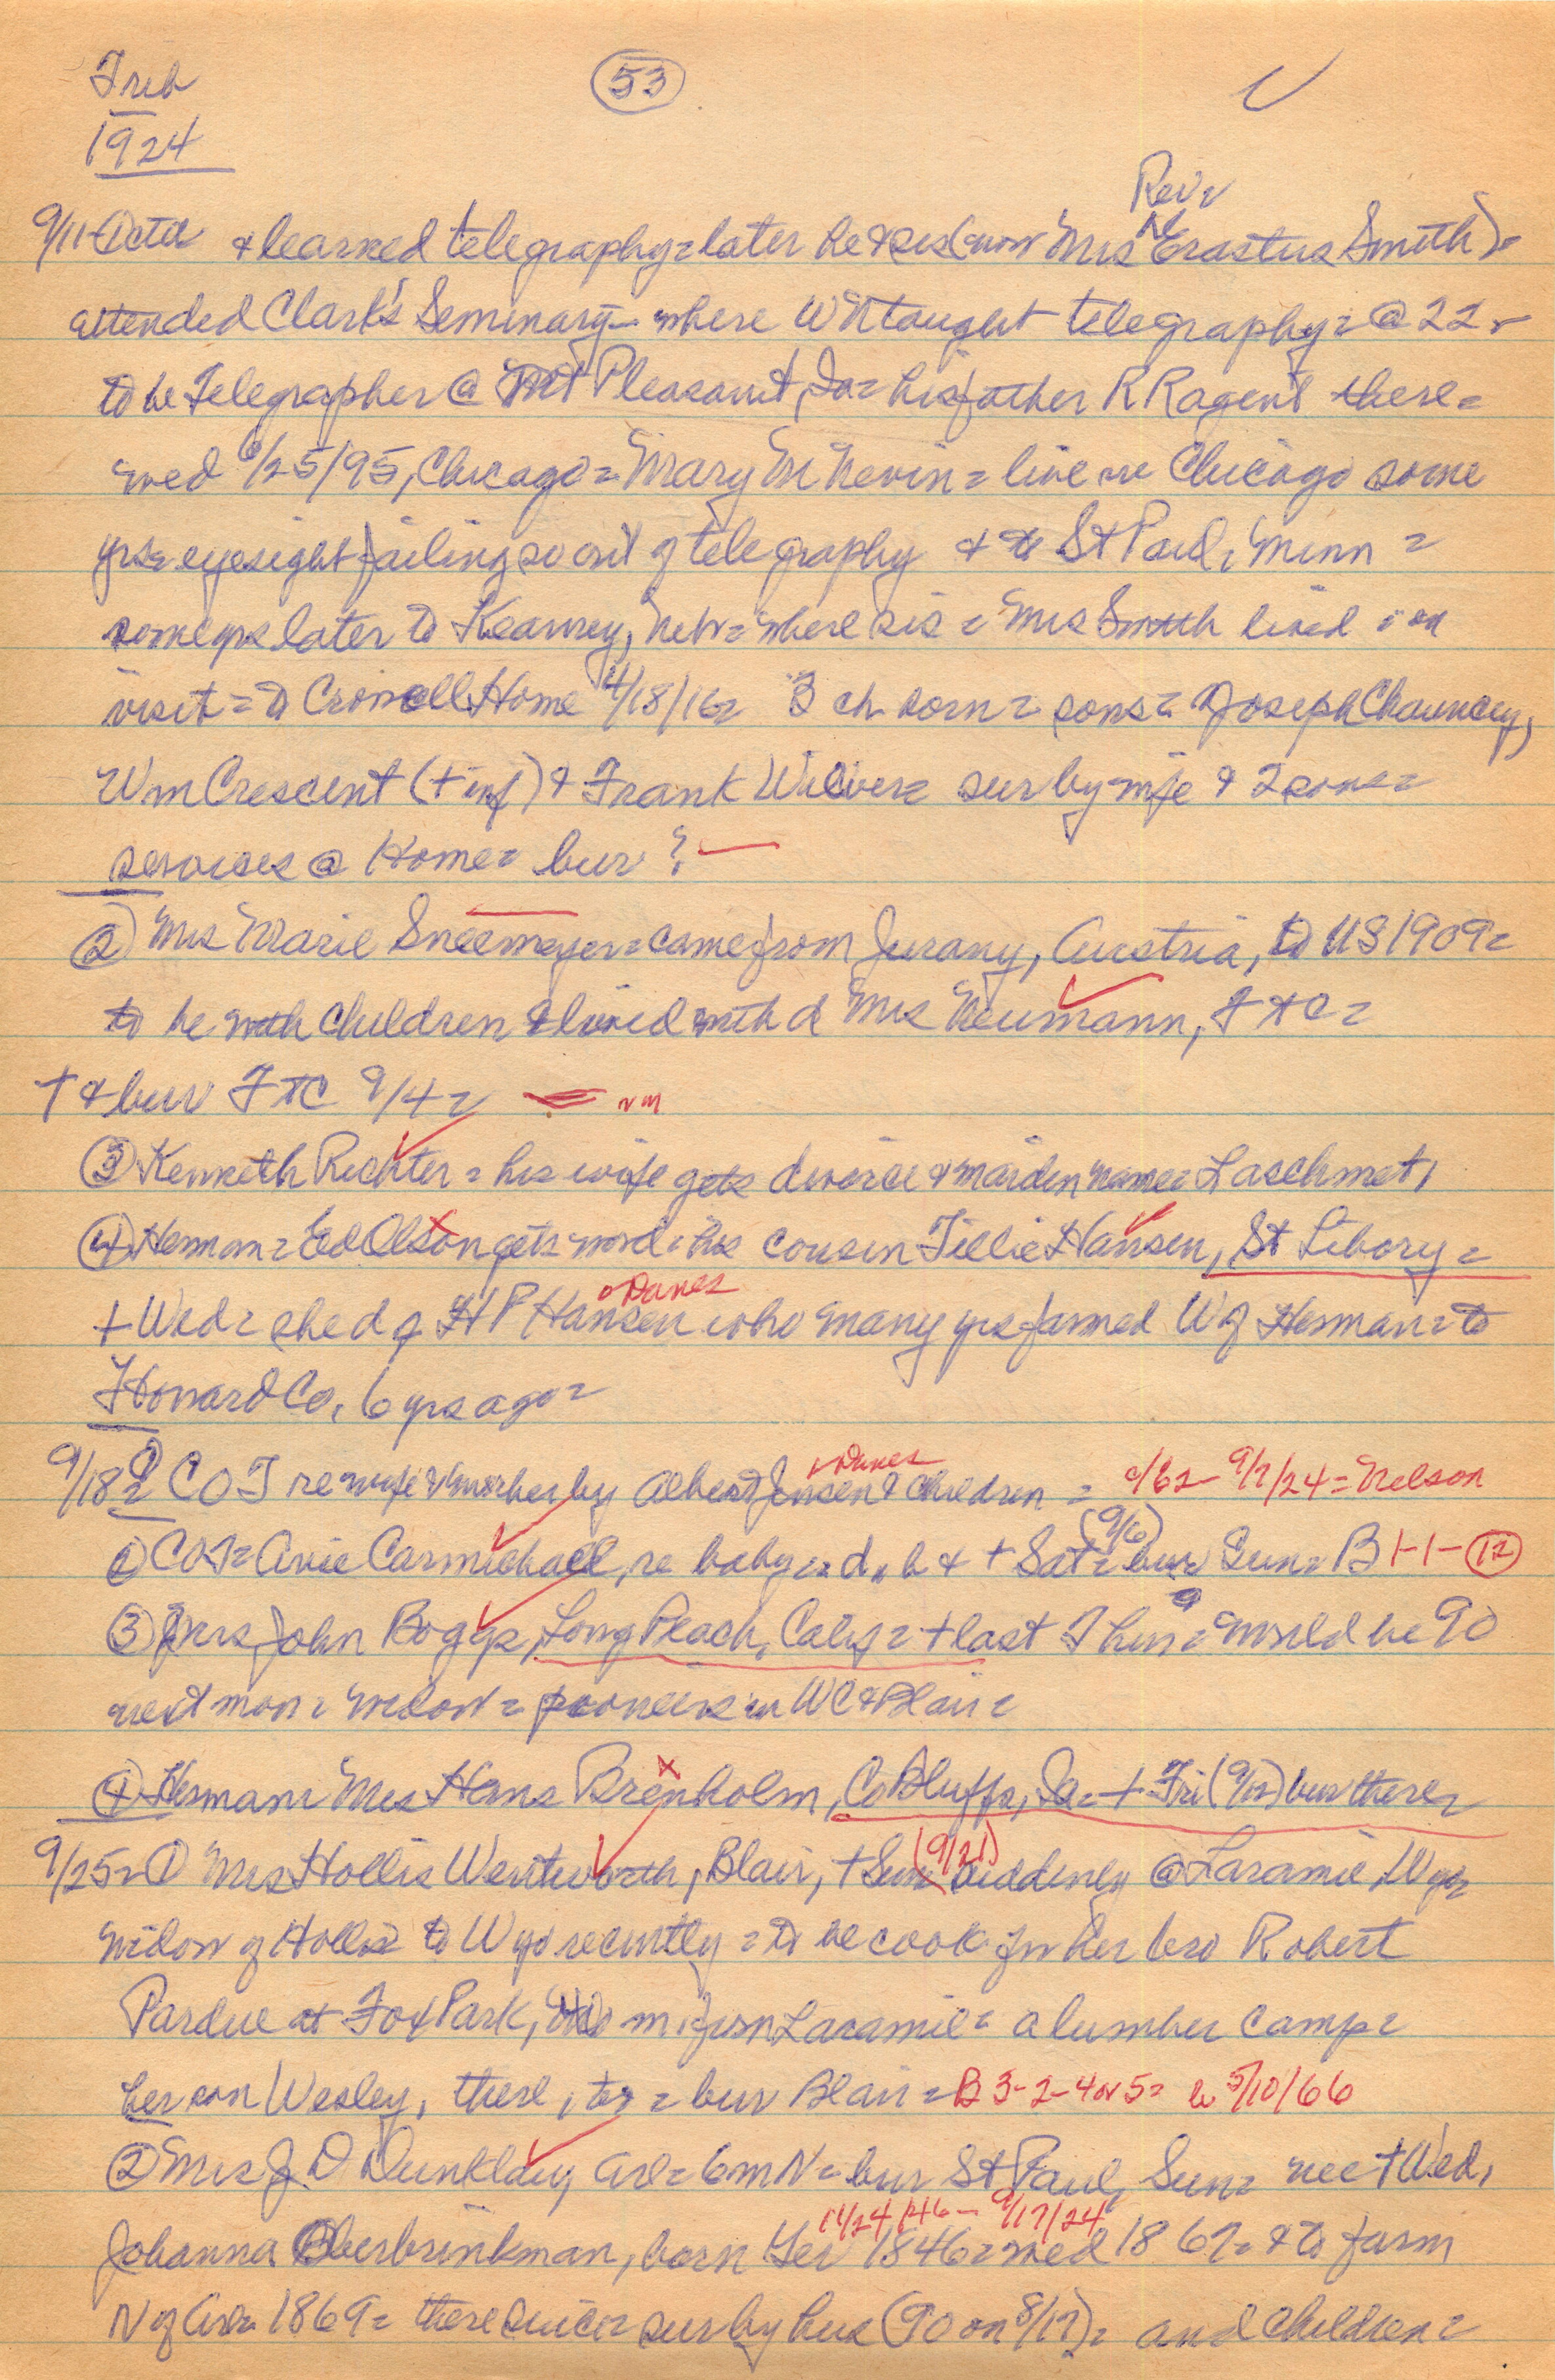 Trib
53
1924
Rev
9/11-Octd & learned telegraphy = later he & sis (now Mrs Erastus Smith) =
attended Clark's Seminary - where Wm taught telegraphy = @ 22 =
to be Telegrapher @ Mt Pleasant, Ia = his father RR agent there =
wed 6/25/95, Chicago = Mary M Nevin = live in Chicago some
yrs = eyesight failing so out of telegraphy & to St Paul, Minn =
some yrs later to Kearney, Neb = where sis = Mrs Smith lived = on
visit = to Crowell Home 4/18/16 = 3 ch born = sons = Joseph Chauncey,
Wm Crescent (+ inf) & Frank Wilver = sur by wife & 2 sons =
services @ Home = bur ?
(2) Mrs Marie Sneemeyer = came from Jurany, Austria, to US 1909 =
to be with children & lived with d Mrs Neumann, Ft C =
+ & bur Ft C 9/4 =
(3) Kenneth Richter = his wife gets divorce & maiden name = Laschmet,
(4) Herman = Ed Olson gets word = his cousin Tillie Hansen, St Libory =
= Danes
+ Wed = she d of H P Hansen who many yrs farmed W of Herman = to
Howard Co, 6 yrs ago =
9/18 = (1) C O T re wife & mother by Albert Jensen & children = /62 - 9/7/24 = Nelson
= Danes
(9/6)
(2) COT = Avie Carmichael, re baby = d, b & + Sat = bur Sun = B 1-1-(12)
(3) Mrs John Boggs, Long Beach, Calif = + last Thur = would be 90
next mon = widow = pioneers in WC & Blair =
(4) Herman = Mrs Hans Brenholm, Co Bluffs, Ia = + Fri (9/12) bur there =
(9/21)
9/25 = (1) Mrs Hollis Wentworth, Blair, + Sun suddenly @ Laramie, Wyo =
widow of Hollis to Wyo recently = to be cook for her bro Robert
Pardue at Fox Park, m. from Laramie = a lumber camp =
her son Wesley, there, too = bur Blair = B 3-2-4 or 5 = b 5/10/66
(2) Mrs J D Dunklau, Arl = 6 m N = bur St Paul, Sun = nee + Wed,
11/24/46 - 9/17/24
Johanna Oberbrinkman, born Ger 1846 = wed 1867 = & to farm
N of Arl = 1869 = there since = sur by hus (90 on 8/17) = and children =